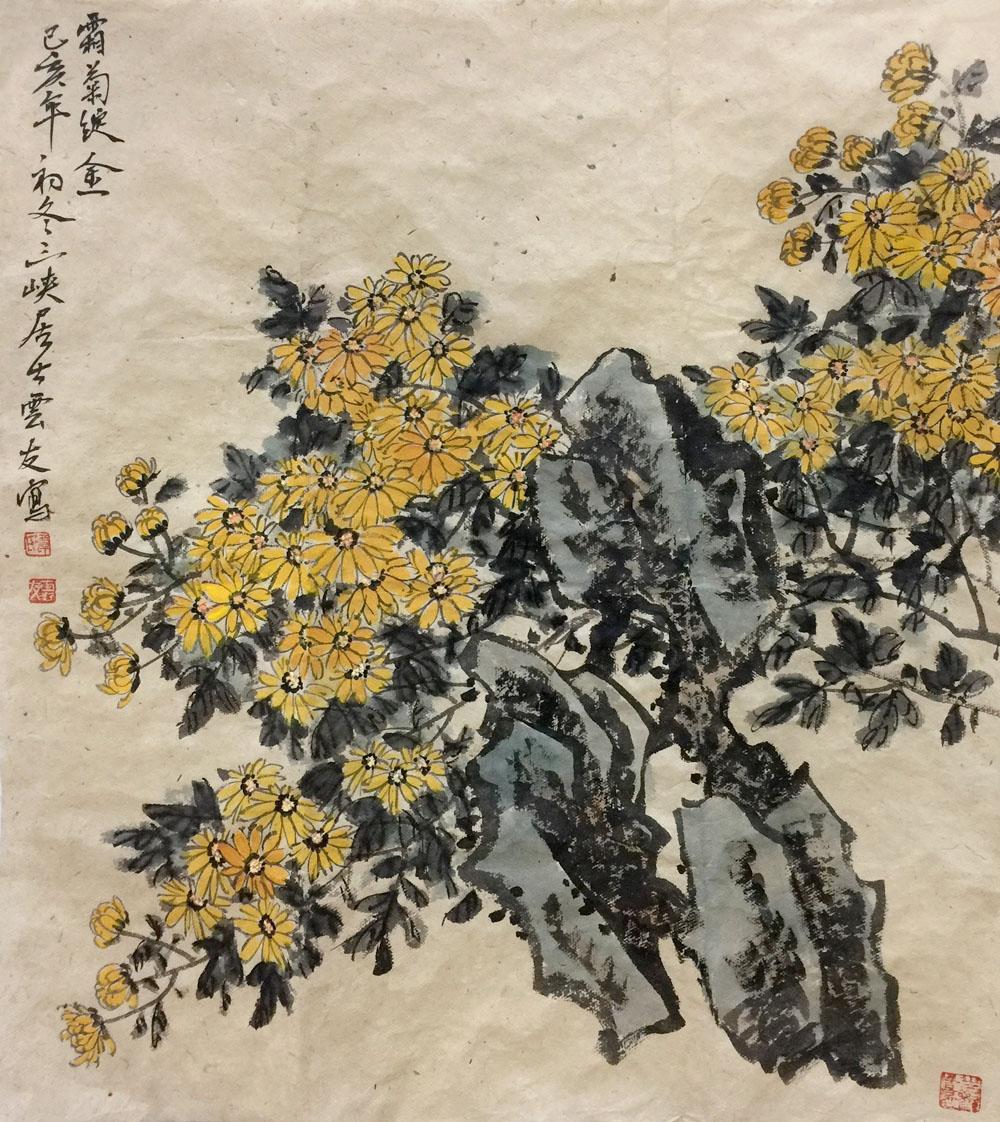 霜菊綻金
己亥年初冬三峡居士雲友寫